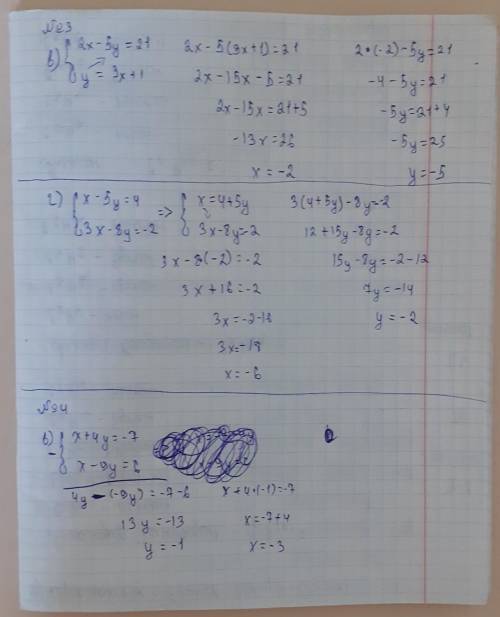 №23
в) { 2x - 5y = 21
y = 3x + 1
2x - 5(3x+1) = 21
2x - 15x - 5 = 21
2x - 15x = 21+5
-13x = 26
x = -2
2·(-2) - 5y = 21
-4 - 5y = 21
-5y = 21+4
-5y = 25
y = -5
г) { x - 5y = 4
3x - 8y = -2
=> { x = 4+5y
3x - 8y = -2
3x - 8·(-2) = -2
3x + 16 = -2
3x = -2-16
3x = -18
x = -6
3(4+5y) - 8y = -2
12 + 15y - 8y = -2
15y - 8y = -2-12
7y = -14
y = -2
№24
в) - { x + 4y = -7
x - 9y = 6
4y - (-9y) = -7-6
13y = -13
y = -1
x + 4·(-1) = -7
x = -7+4
x = -3